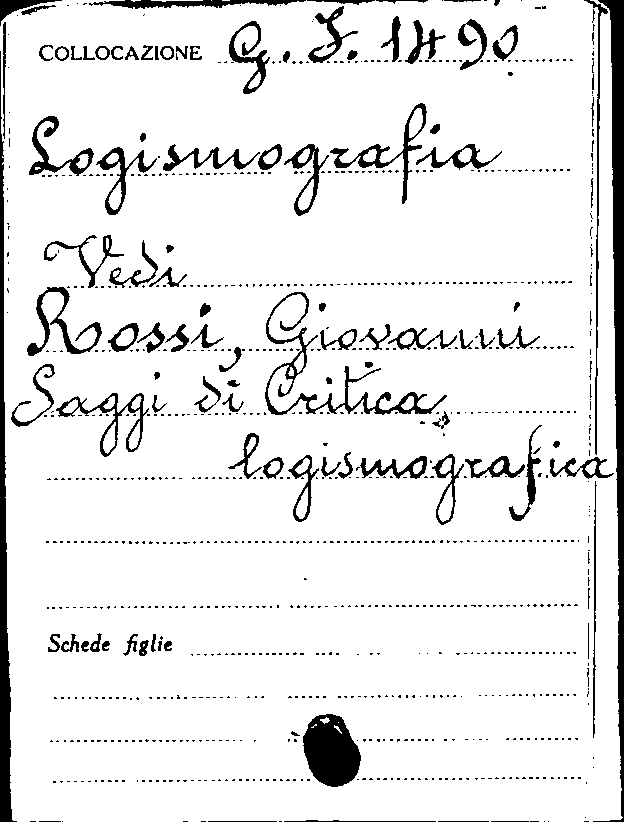 COLLOCAZIONE G. F. 1490
Logismografia
Vedi
Rossi, Giovanni
Saggi di Critica
logismografica
Schede figlie